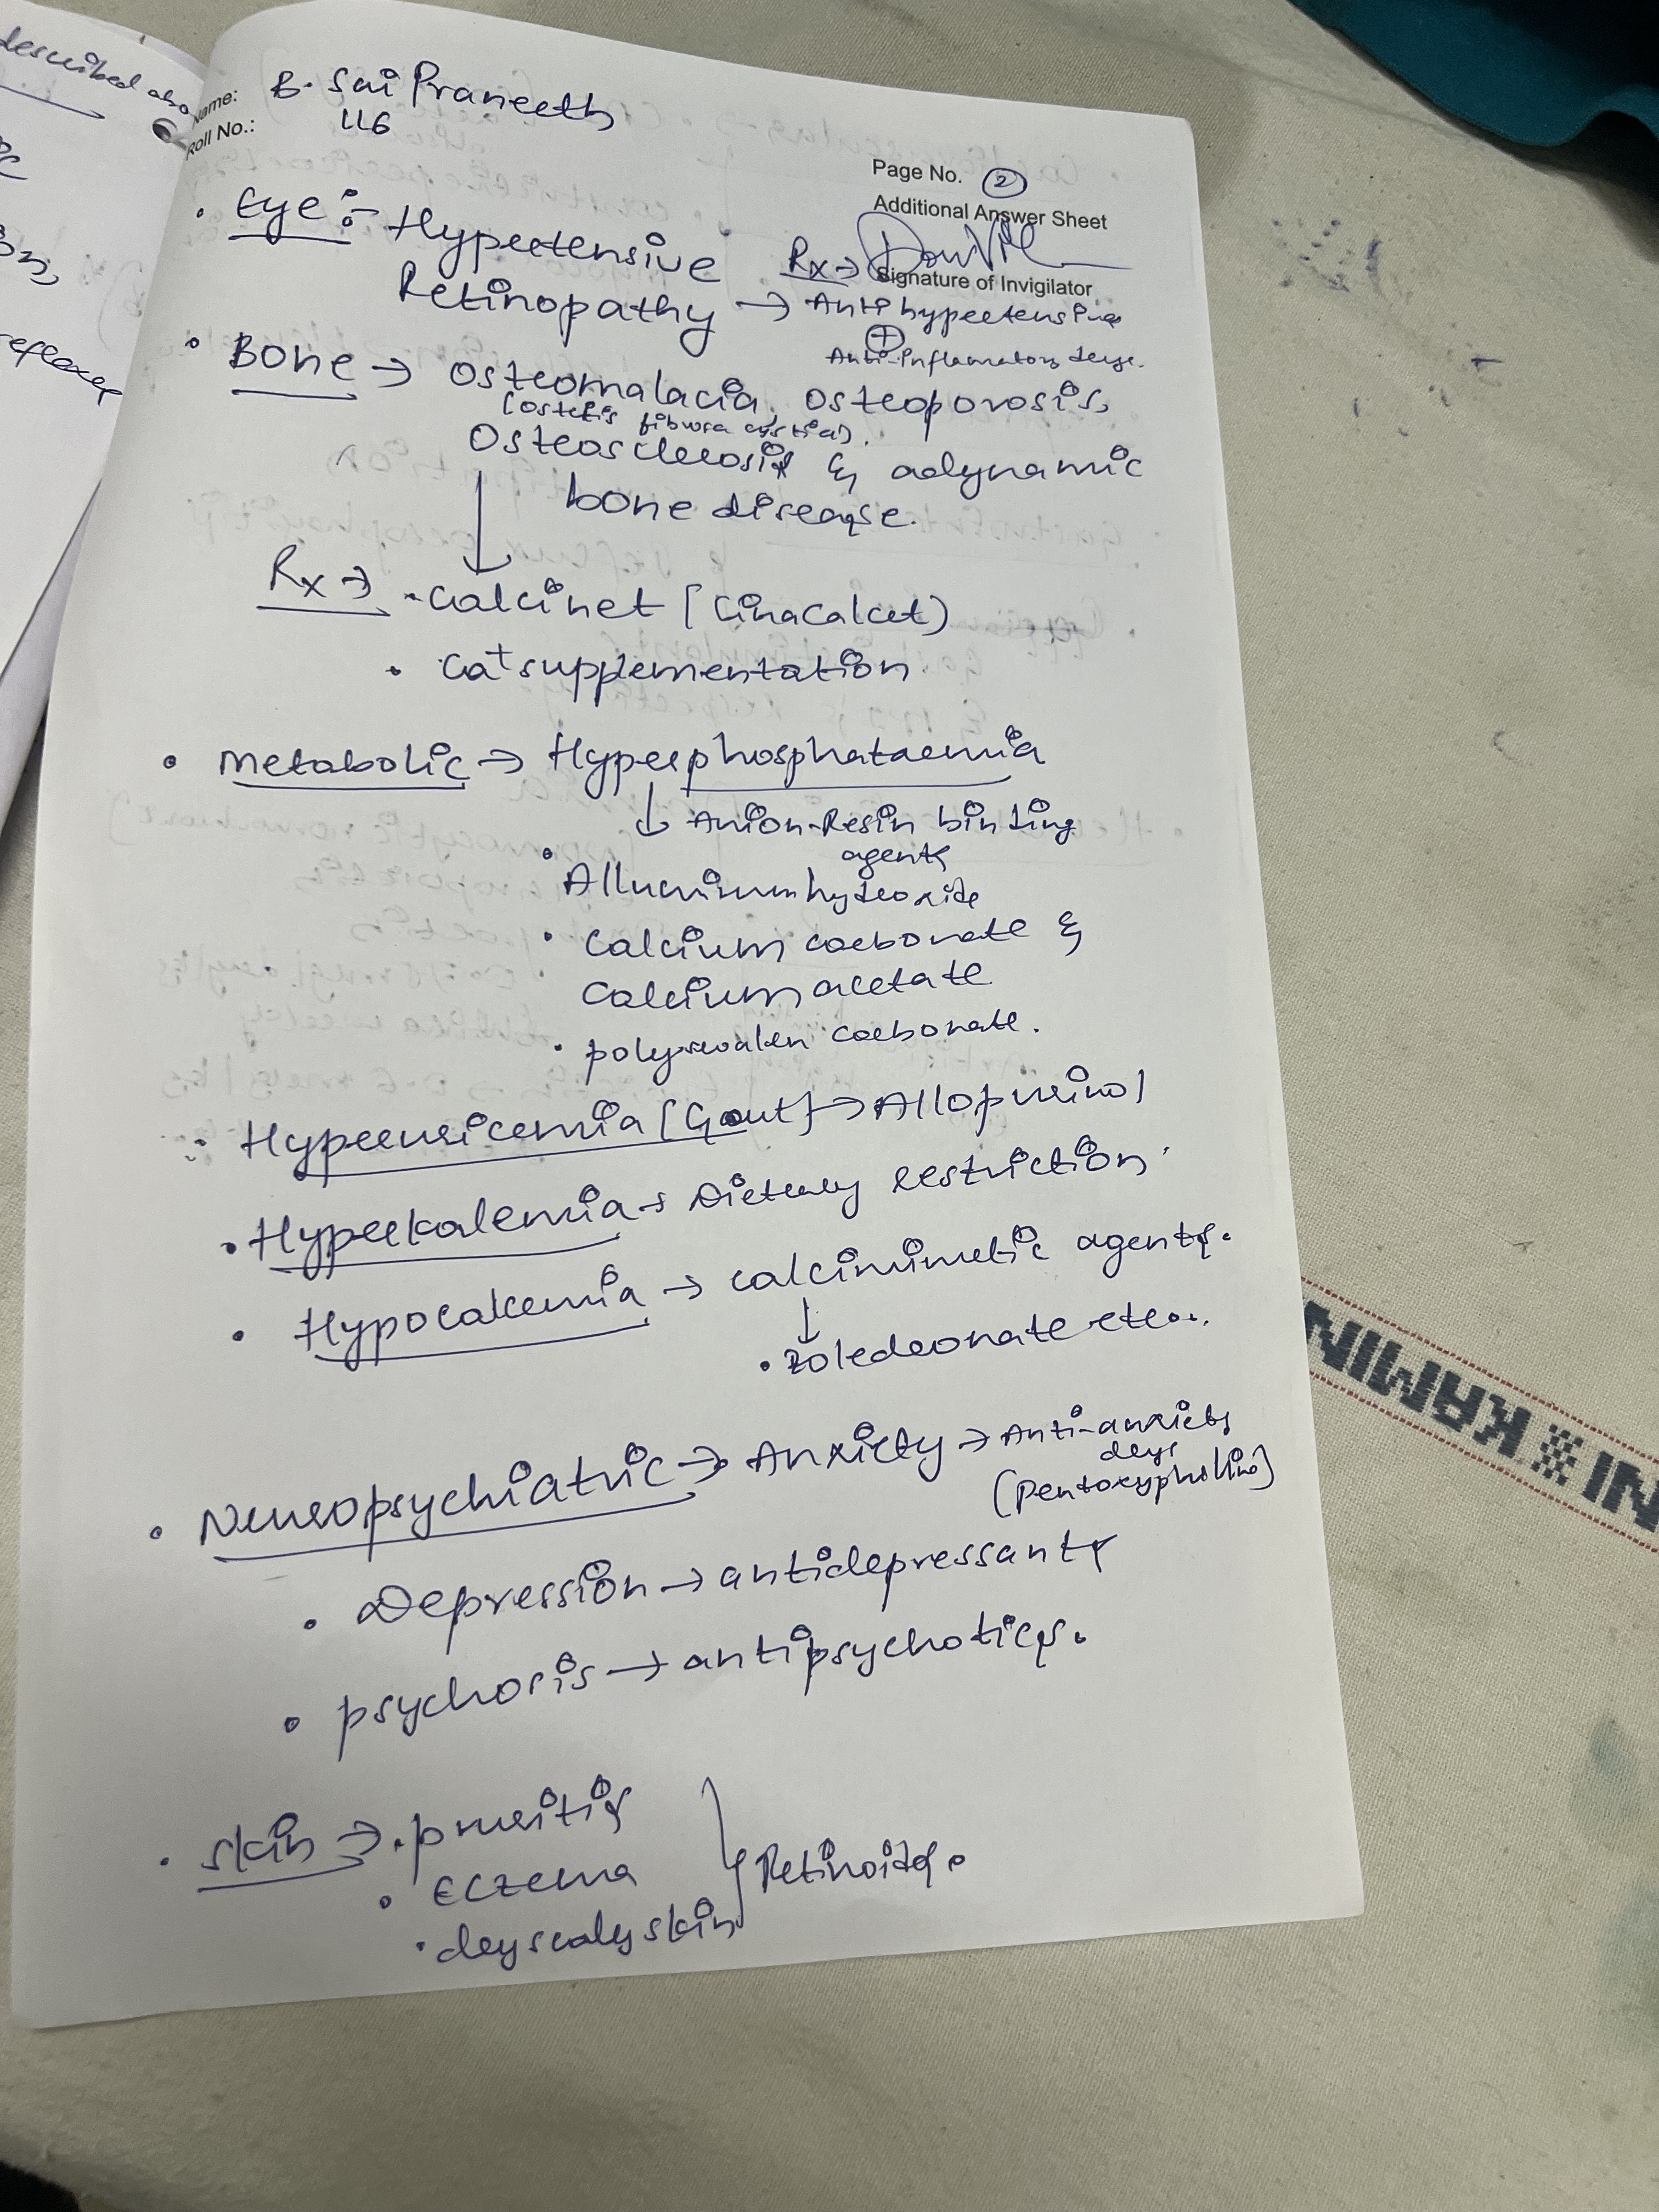 described abo
on,
reflexes
Name: B. Sai Praneeth
Roll No.: 116
Page No. 2
Additional Answer Sheet
Signature of Invigilator
• Eye :- Hypertensive
Retinopathy → Antihypertensives
Rx →
+
Anti-inflammatory drugs.
• Bone → Osteomalacia, osteoporosis,
(ostetis fibrosa cystica).
Osteosclerosis & adynamic
bone disease.
Rx → • Calcinet (Cinacalcet)
• Ca+ supplementation
• Metabolic → Hyperphosphataemia
↓ Anion-Resin binting
agents
• Alluminium hydroxide
• Calcium carbonate &
Calcium acetate
• polysevalen carbonate.
• Hyperuricemia (Gout) → Allopurinol
• Hyperkalemia → Dietary restriction.
• Hypocalcemia → calcimimetic agents.
↓
• zoledronate etc...
• Neuropsychiatric → Anxiety → Anti-anxiety
drugs
(Pentoxyphilline)
• Depression → antidepressants
• psychosis → antipsychotics.
• Skin → • pruritis
• Eczema
• dryscaly skin
Retinoids.
NI KAMIN